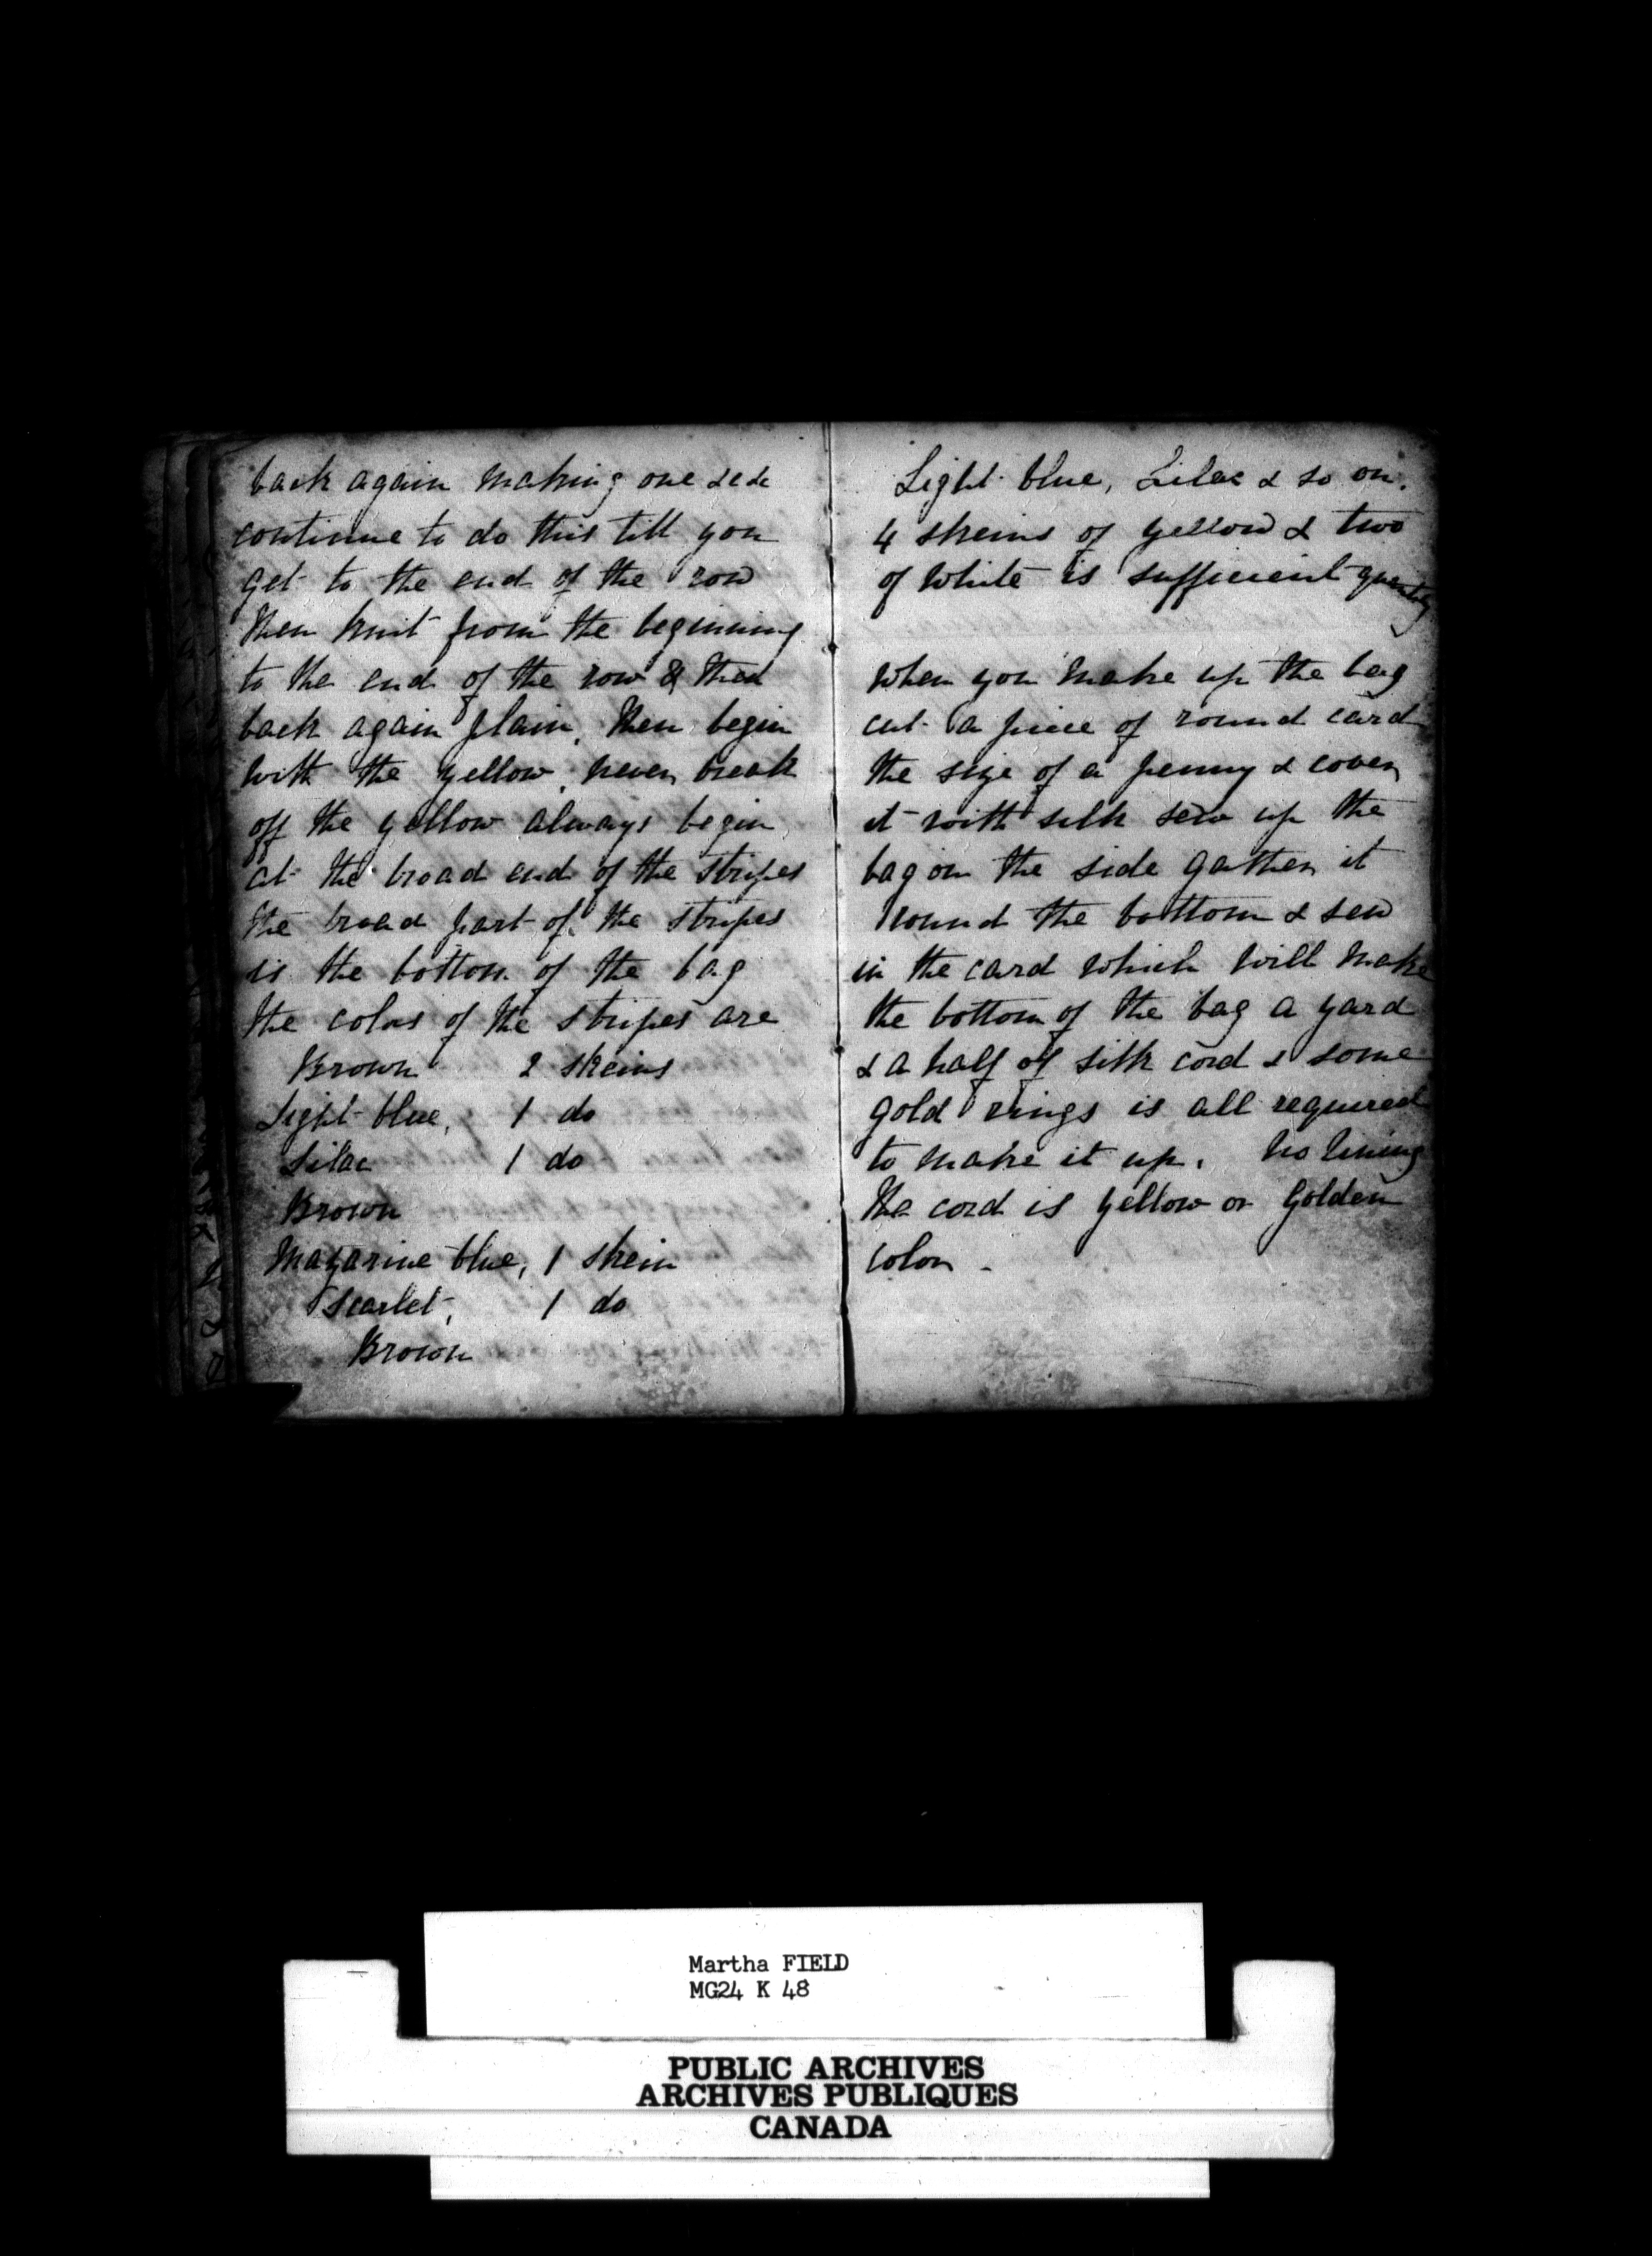 back again making one &c &c
continue to do this till you
get to the end of the row
then knit from the beginning
to the end of the row & then
back again plain, then begin
with the yellow, never break
off the yellow always begin
at the broad end of the stripes
the broad part of the stripes
is the bottom of the bag
the colors of the stripes are
Brown 2 skeins
Light blue, 1 do
Lilac 1 do
Brown
Mazarine blue, 1 skein
Scarlet, 1 do
Brown
Light blue, Lilac & so on.
4 skeins of yellow & two
of white is sufficient quantity
when you make up the bag
cut a piece of round card
the size of a penny & cover
it with silk sew up the
bag on the side gather it
round the bottom & sew
in the card which will make
the bottom of the bag a yard
& a half of silk cord & some
gold rings is all required
to make it up. no lining
the cord is yellow or golden
color -
Martha FIELD
MG24 K 48
PUBLIC ARCHIVES
ARCHIVES PUBLIQUES
CANADA